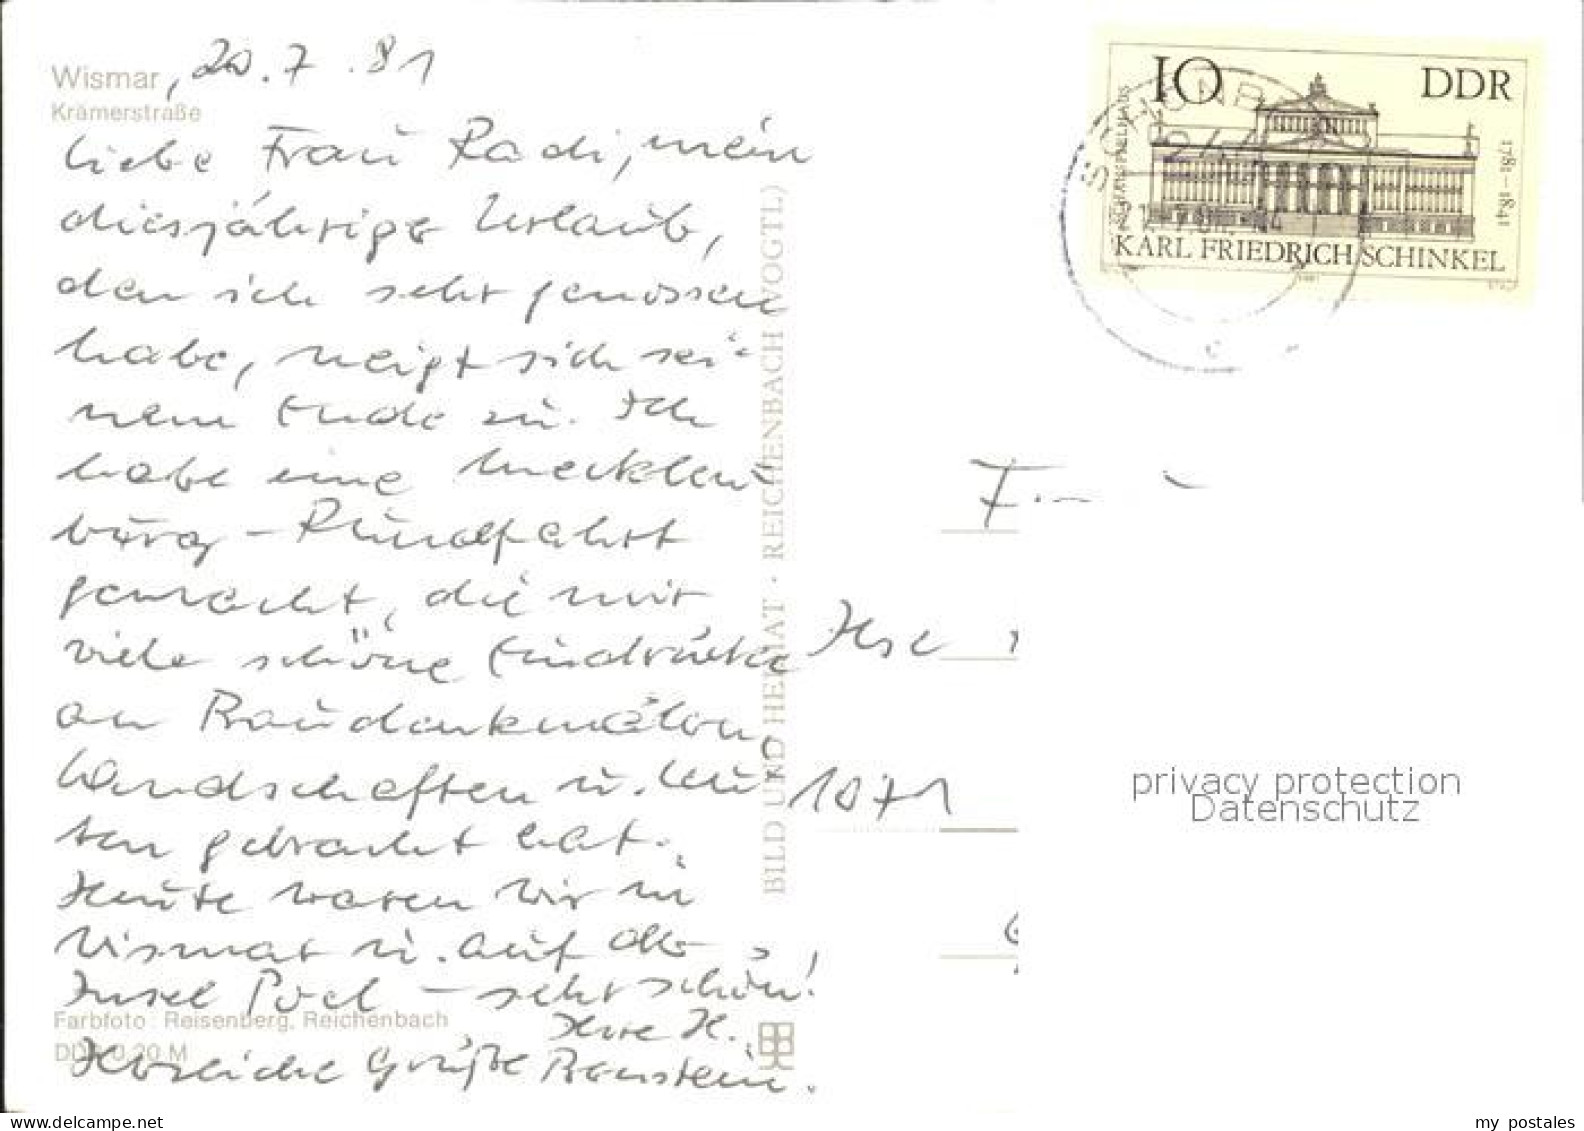 Wismar, 20.7.81
Krämerstraße
Liebe Frau Radi, mein
diesjähriger Urlaub,
den ich sehr genossen
habe, neigt sich sei-
nem Ende zu. Ich
habe eine Mecklen-
burg-Rundfahrt
gemacht, die mir
viele schöne Eindrücke
an Baudenkmälern,
Landschaften u. Leu-
ten gebracht hat.
Heute waren wir in
Wismar u. auf der
Insel Poel – sehr schön!
Ihre H.
Herzliche Grüße Bernstein.
Farbfoto: Reisenberg, Reichenbach
DDR 0,20 M
BILD UND HEIMAT · REICHENBACH (VOGTL)
10 DDR
SCHAUSPIELHAUS
1781–1841
KARL FRIEDRICH SCHINKEL
Ilse
1071
privacy protection
Datenschutz
my postales